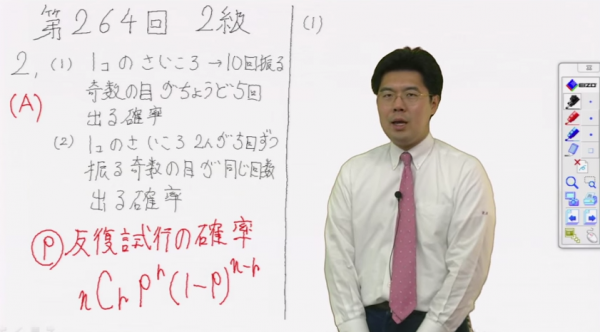 第264回 2級
2. (1) 1コのさいころ→10回振る
(A) 奇数の目がちょうど5回
出る確率
(2) 1コのさいころ2人が5回ずつ
振る奇数の目が同じ回数
出る確率
Ⓟ反復試行の確率
nCr p^r (1-p)^{n-r}
(1)
EIZO